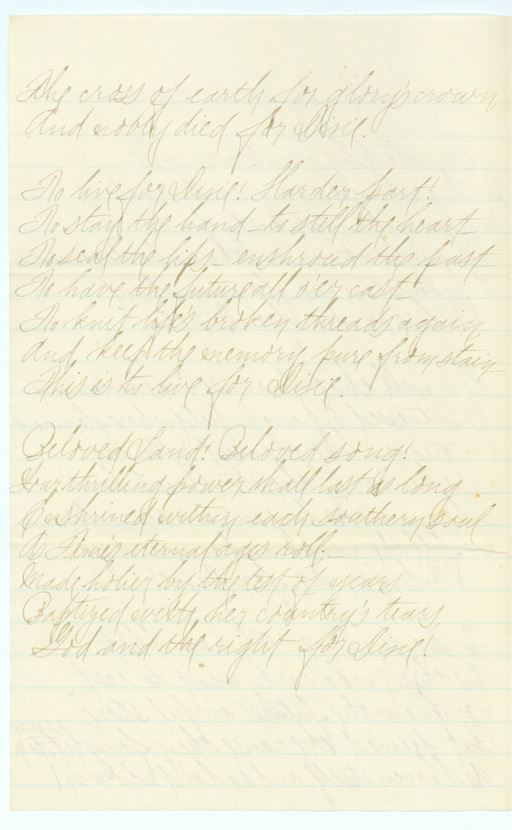 The cross of earth for glory's crown,
And nobly died for Dixie.
To live for Dixie! Harder part!
To stay the hand - to still the heart -
To seal the lips - enshroud the past -
To have the future all o'er cast -
To knit life's broken threads again,
And keep the memory pure from stain -
This is to live for Dixie.
Beloved Land! Beloved song!
Your thrilling power shall last as long
Enshrined within each southern soul
As Time's eternal ages roll. -
Made holier by the test of years
Baptized with her country's tears,
God and the right for Dixie!